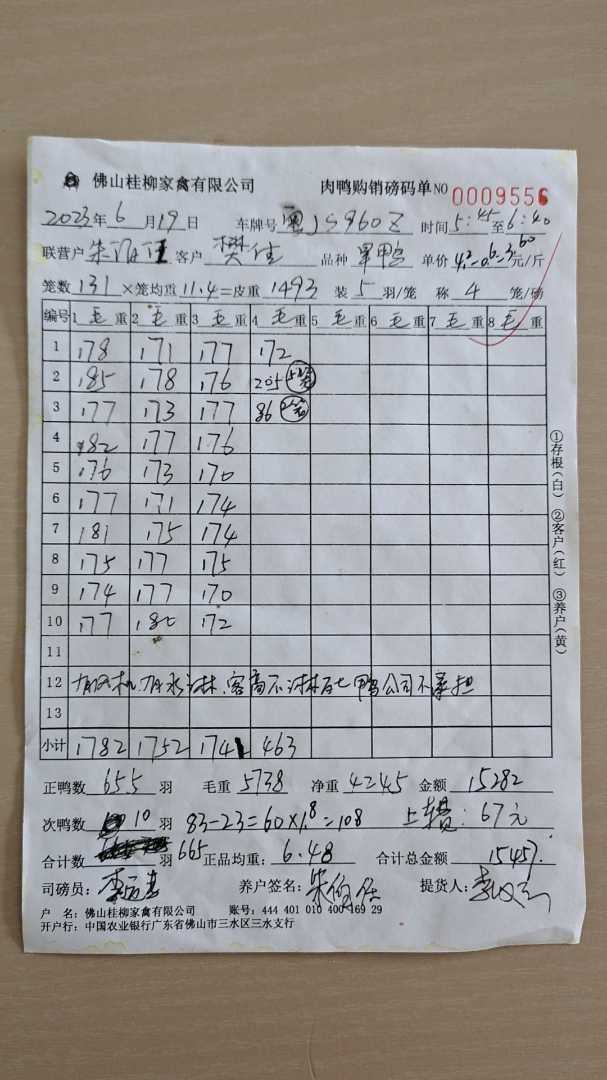 佛山桂柳家禽有限公司 肉鸭购销磅码单 NO 0009556
2023年 6月19日 车牌号 JS960Z 时间 5:45至6:40
联营户 朱 客户 樊佳 品种 单价 4.2-0.6=3.60 元/斤
笼数 131 ×笼均重 11.4=皮重 1493 装 5 羽/笼 称 4 笼/磅
编号 1毛重 2毛重 3毛重 4毛重 5毛重 6毛重 7毛重 8毛重
1 178 171 177 172
2 185 178 176 205 5笼
3 177 173 177 86 2笼
4 182 177 176
5 176 173 170
6 177 171 174
7 181 175 174
8 175 177 175
9 174 177 170
10 177 180 172
11
12 有风机,有水淋,客商不淋死鸭公司不承担
13
小计 1782 1752 1741 463
①存根(白) ②客户(红) ③养户(黄)
正鸭数 655 羽 毛重 5738 净重 4245 金额 15282
次鸭数 10 羽 83-23=60×1.8=108 上车费:67元
合计数 羽 665 正品均重: 6.48 合计总金额 15457.
司磅员: 养户签名: 朱 提货人: 李
户 名:佛山桂柳家禽有限公司 账号:444 401 010 400 169 29
开户行:中国农业银行广东省佛山市三水区三水支行